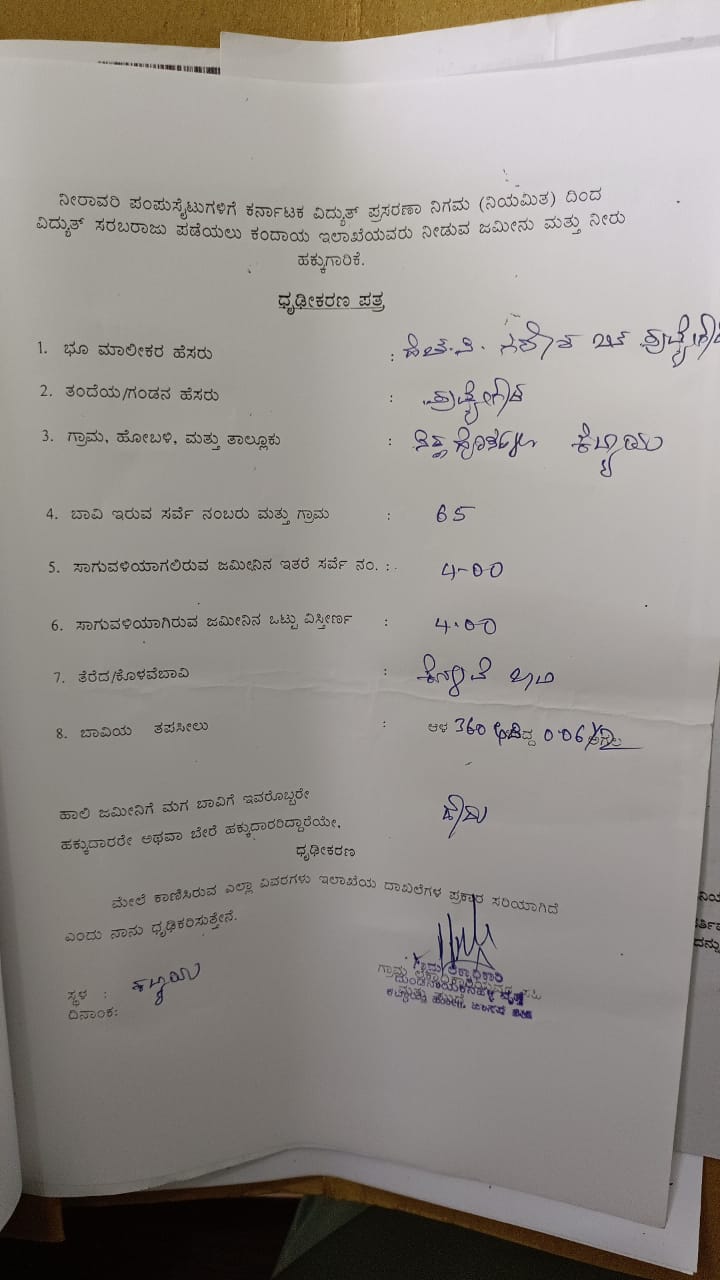 ನೀರಾವರಿ ಪಂಪುಸೈಟುಗಳಿಗೆ ಕರ್ನಾಟಕ ವಿದ್ಯುತ್ ಪ್ರಸರಣಾ ನಿಗಮ (ನಿಯಮಿತ) ದಿಂದ
ವಿದ್ಯುತ್ ಸರಬರಾಜು ಪಡೆಯಲು ಕಂದಾಯ ಇಲಾಖೆಯವರು ನೀಡುವ ಜಮೀನು ಮತ್ತು ನೀರು
ಹಕ್ಕುಗಾರಿಕೆ.
ಧೃಢೀಕರಣ ಪತ್ರ
1. ಭೂ ಮಾಲೀಕರ ಹೆಸರು : ಹೆಚ್.ವಿ.
2. ತಂದೆಯ/ಗಂಡನ ಹೆಸರು :
3. ಗ್ರಾಮ, ಹೋಬಳಿ, ಮತ್ತು ತಾಲ್ಲೂಕು : ಕಟ್ಟಾಯ
4. ಬಾವಿ ಇರುವ ಸರ್ವೆ ನಂಬರು ಮತ್ತು ಗ್ರಾಮ : 65
5. ಸಾಗುವಳಿಯಾಗಲಿರುವ ಜಮೀನಿನ ಇತರೆ ಸರ್ವೆ ನಂ. : 4-00
6. ಸಾಗುವಳಿಯಾಗಿರುವ ಜಮೀನಿನ ಒಟ್ಟು ವಿಸ್ತೀರ್ಣ : 4.00
7. ತೆರೆದ/ಕೊಳವೆಬಾವಿ : ಕೊಳವೆ ಬಾವಿ
8. ಬಾವಿಯ ತಪಸೀಲು : ಆಳ 360 ಉದ್ದ 006½ ಅಗಲ
ಹಾಲಿ ಜಮೀನಿಗೆ ಮಗ ಬಾವಿಗೆ ಇವರೊಬ್ಬರೇ
ಹಕ್ಕುದಾರರೇ ಅಥವಾ ಬೇರೆ ಹಕ್ಕುದಾರರಿದ್ದಾರೆಯೇ, ಹೌದು
ಧೃಢೀಕರಣ
ಮೇಲೆ ಕಾಣಿಸಿರುವ ಎಲ್ಲಾ ವಿವರಗಳು ಇಲಾಖೆಯ ದಾಖಲೆಗಳ ಪ್ರಕಾರ ಸರಿಯಾಗಿದೆ
ಎಂದು ನಾನು ಧೃಢಿಕರಿಸುತ್ತೇನೆ.
ಸ್ಥಳ : ಕಟ್ಟಾಯ
ದಿನಾಂಕ:
ಗ್ರಾಮ ಲೆಕ್ಕಾಧಿಕಾರಿ